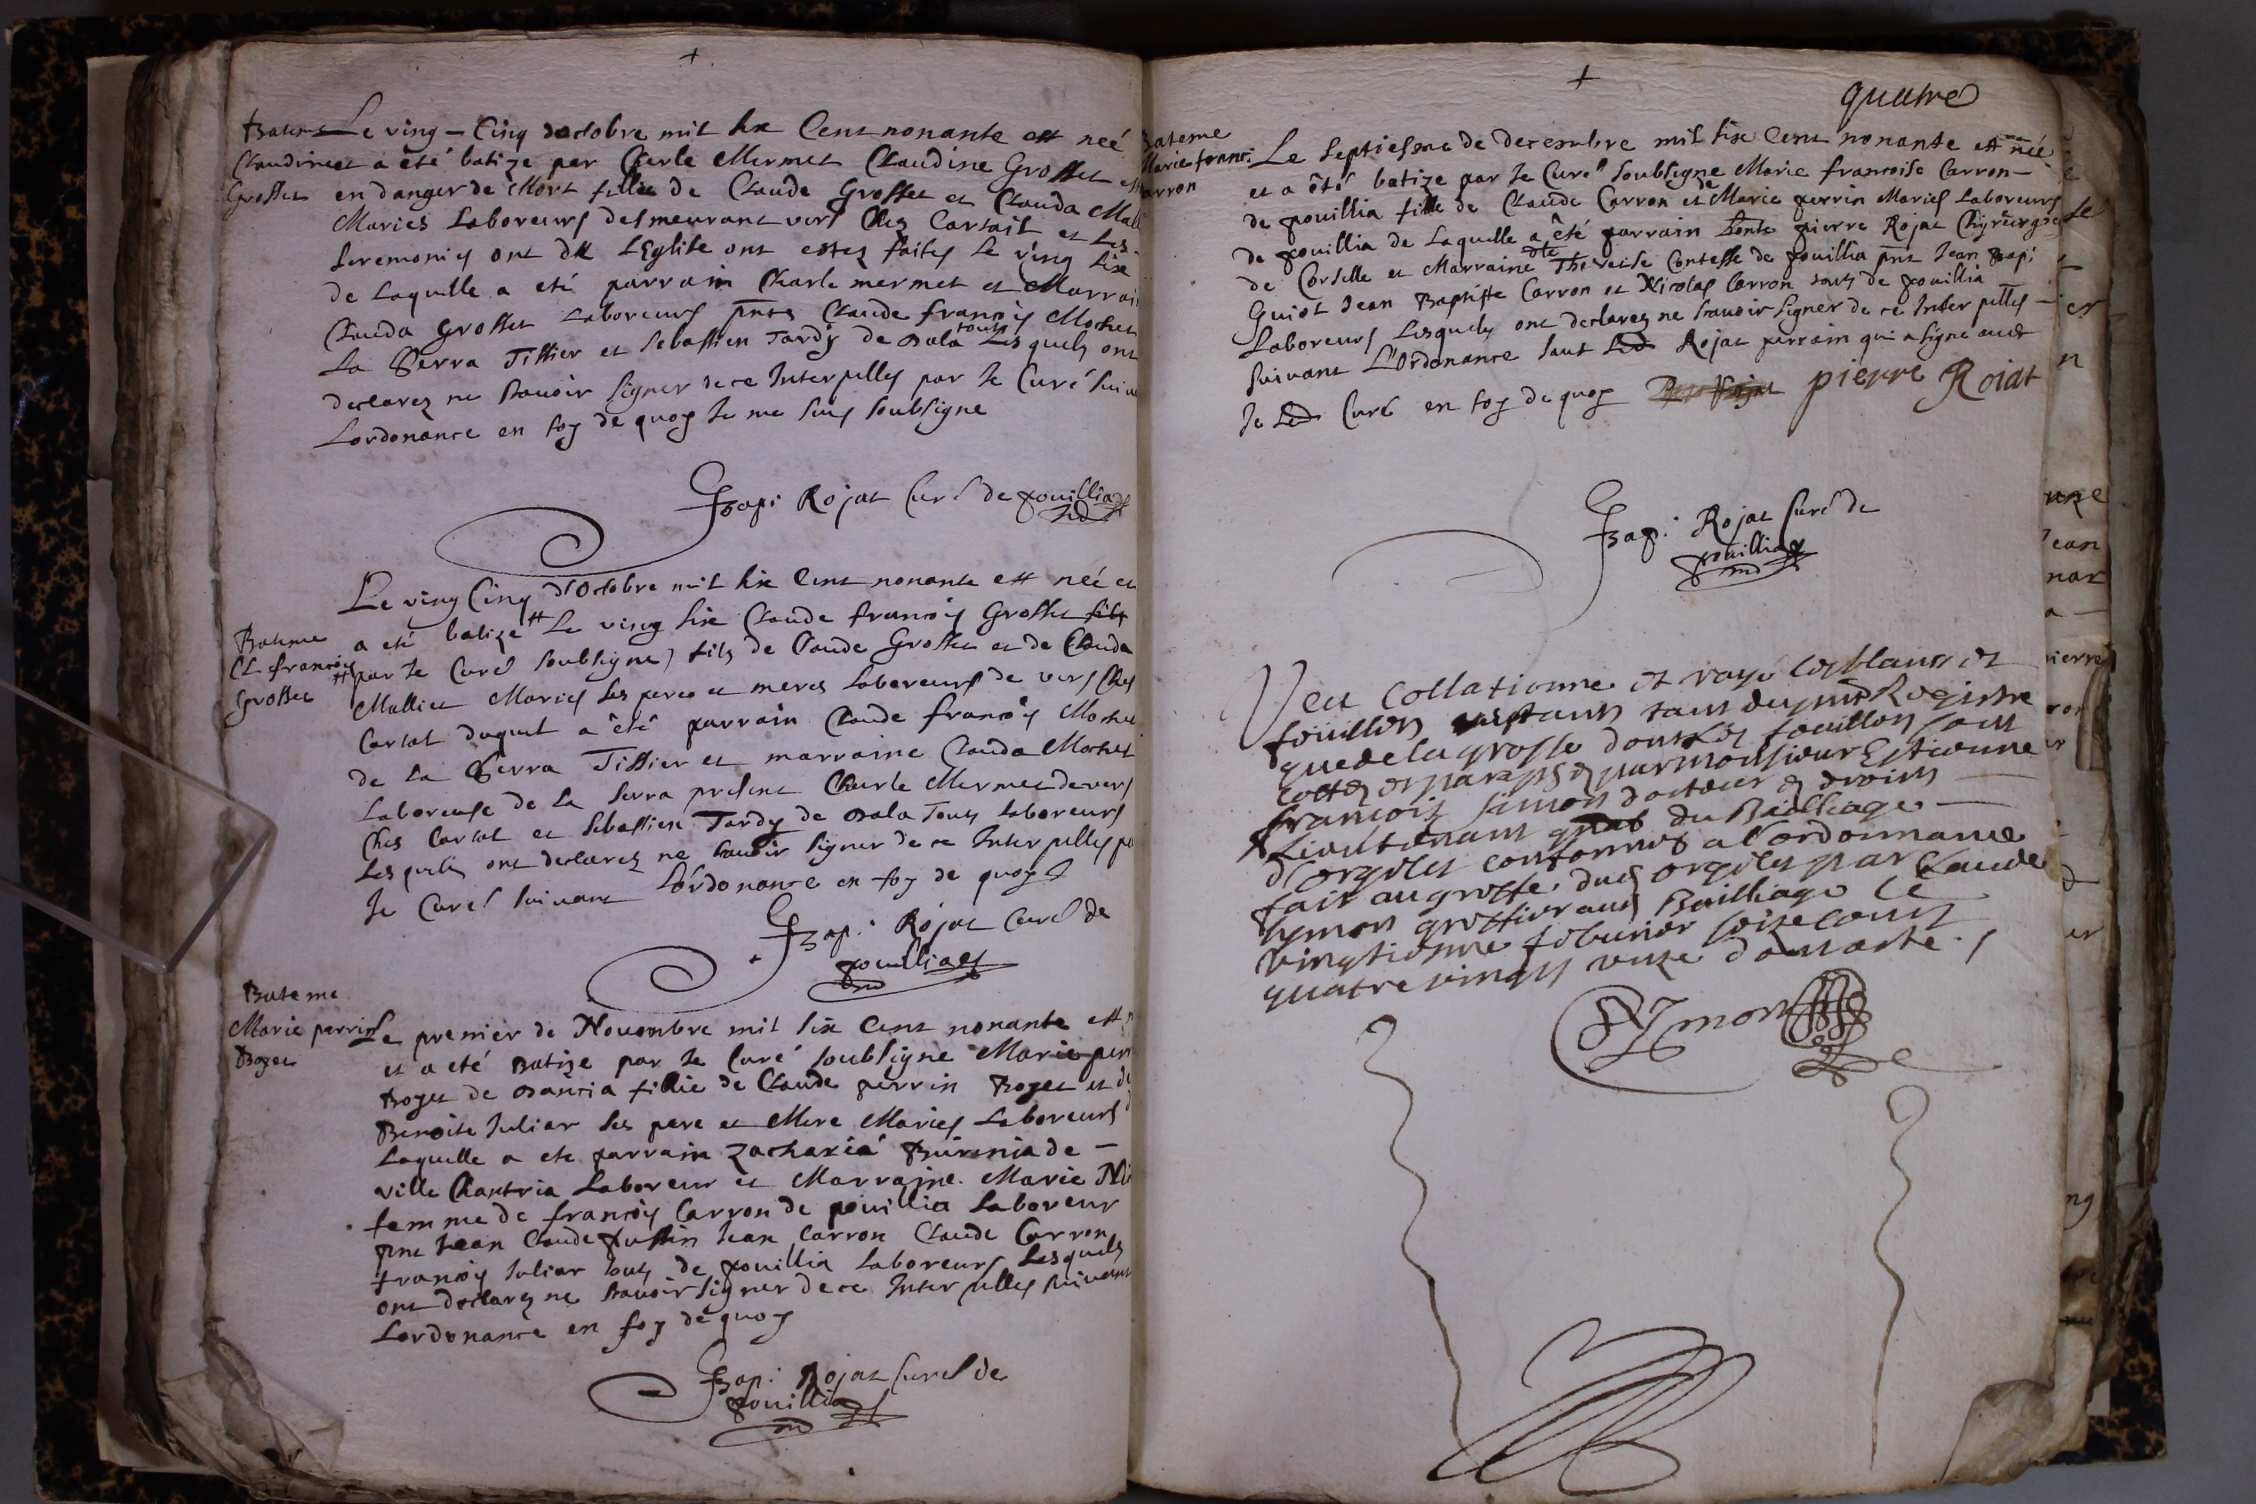 +
Bateme
Claudine
Grosset
Le ving - Cinq doctobre mil six Cent nonante est neé
et a été batize par Charle Mermet Claudine Grosset
en danger de Mort fille de Claude Grosset et Clauda
Maries Laboreurs desmeurant vers Ches Cartail et les
Seremonies ont de LEglise ont estez faites le ving six
de Laquelle a eté parrain Charle mermet et Marraine
Clauda Grosset Laboreurs pnts Claude francois Mochet
La Serra Tissier et Sebastien Tardy de Dala touts Lesquels ont
declarez ne scavoir signer de ce Interpelles par Je Curé suivant
Lordonance en foy de quoy Je me suis soubsigne
Bap: Rojat Curé de pouillia
Bateme
Cl françois
Grosset
Le ving Cinq d'Octobre mil six Cent nonante est neé et
a eté batize le ving six Claude francois Grosset fils
par Je Curé soubsigne) fils de Claude Grosset et de Clauda
Malliet Maries ses perre et meres Laboreurs de vers Ches
Cartal duquel a êté parrain Claude francois Mochet
de La Serra Tissier et marraine Clauda Mochet
Laboreuse de La Serra present Charle Mermet de vers
Ches Cartal et Sebastien Tardy de Dala Touts Laboreurs
Lesquels ont declarez ne scavoir signer de ce Interpelles par
Je Curé suivant Lordonance en foy de quoy
Bap: Rojat Curé de
pouillia
Bateme
Marie perrin
Boget
Le premier de Novembre mil six Cent nonante est
et a eté Batize par Je Curé soubsigne Marie perrin
Boget de Dancia fille de Claude perrin Boget et de
Benoite Juliar ses pere et Mere Maries Laboreurs
Laquelle a ete parrain Zacharia Burnia de -
ville Chantria Laboreur et Marraine Marie
femme de francois Carron de pouillia Laboreur
pnt Jean Claude Jean Carron Claude Carron
francois Juliar touts de pouillia Laboreurs Lesquels
ont declarez ne scavoir signer de ce Interpelles suivant
Lordonance en foy de quoy
Bap: Rojat Curé de
pouillia
+
quatre
Bateme
Marie franc:
Carron
Le septiesme de decembre mil six Cent nonante est née
et a êté batize par Je Curé soubsigne Marie francoise Carron -
de pouillia fille de Claude Carron et de Marie perrin Maries Laboreurs
de pouillia de Laquelle a êté parrain pierre Rojat Chyrurgien
de Corselle et Marraine dlle Therese Contesse de pouillia pnt Jean Bapt
Guiot Jean Baptiste Carron et Nicolas Carron touts de pouillia
Laboreurs Lesquels ont declarez ne scavoir signer de ce Interpelles -
suivant L'Ordonance sauf Led Rojat parrain qui a signe avec
Je Led Curé en foy de quoy pierre Roiat
Bap: Rojat Curé de
pouillia
Veu Collationne et rayé les blancs et
feuilles restants tant du pnt Registre
que de la grosse dont les feuilles sont
cottés et paraphés par monsieur Estienne
francois Simon docteur es droits -
Lieutenant gnal du Bailliage -
d'Orgelet conforme a l'ordonnance
fait au greffe dud Orgelet par Claude
Symon greffier aud Bailliage Le
vingtieme febvrier seize cent
quatre vingts unze
Symon